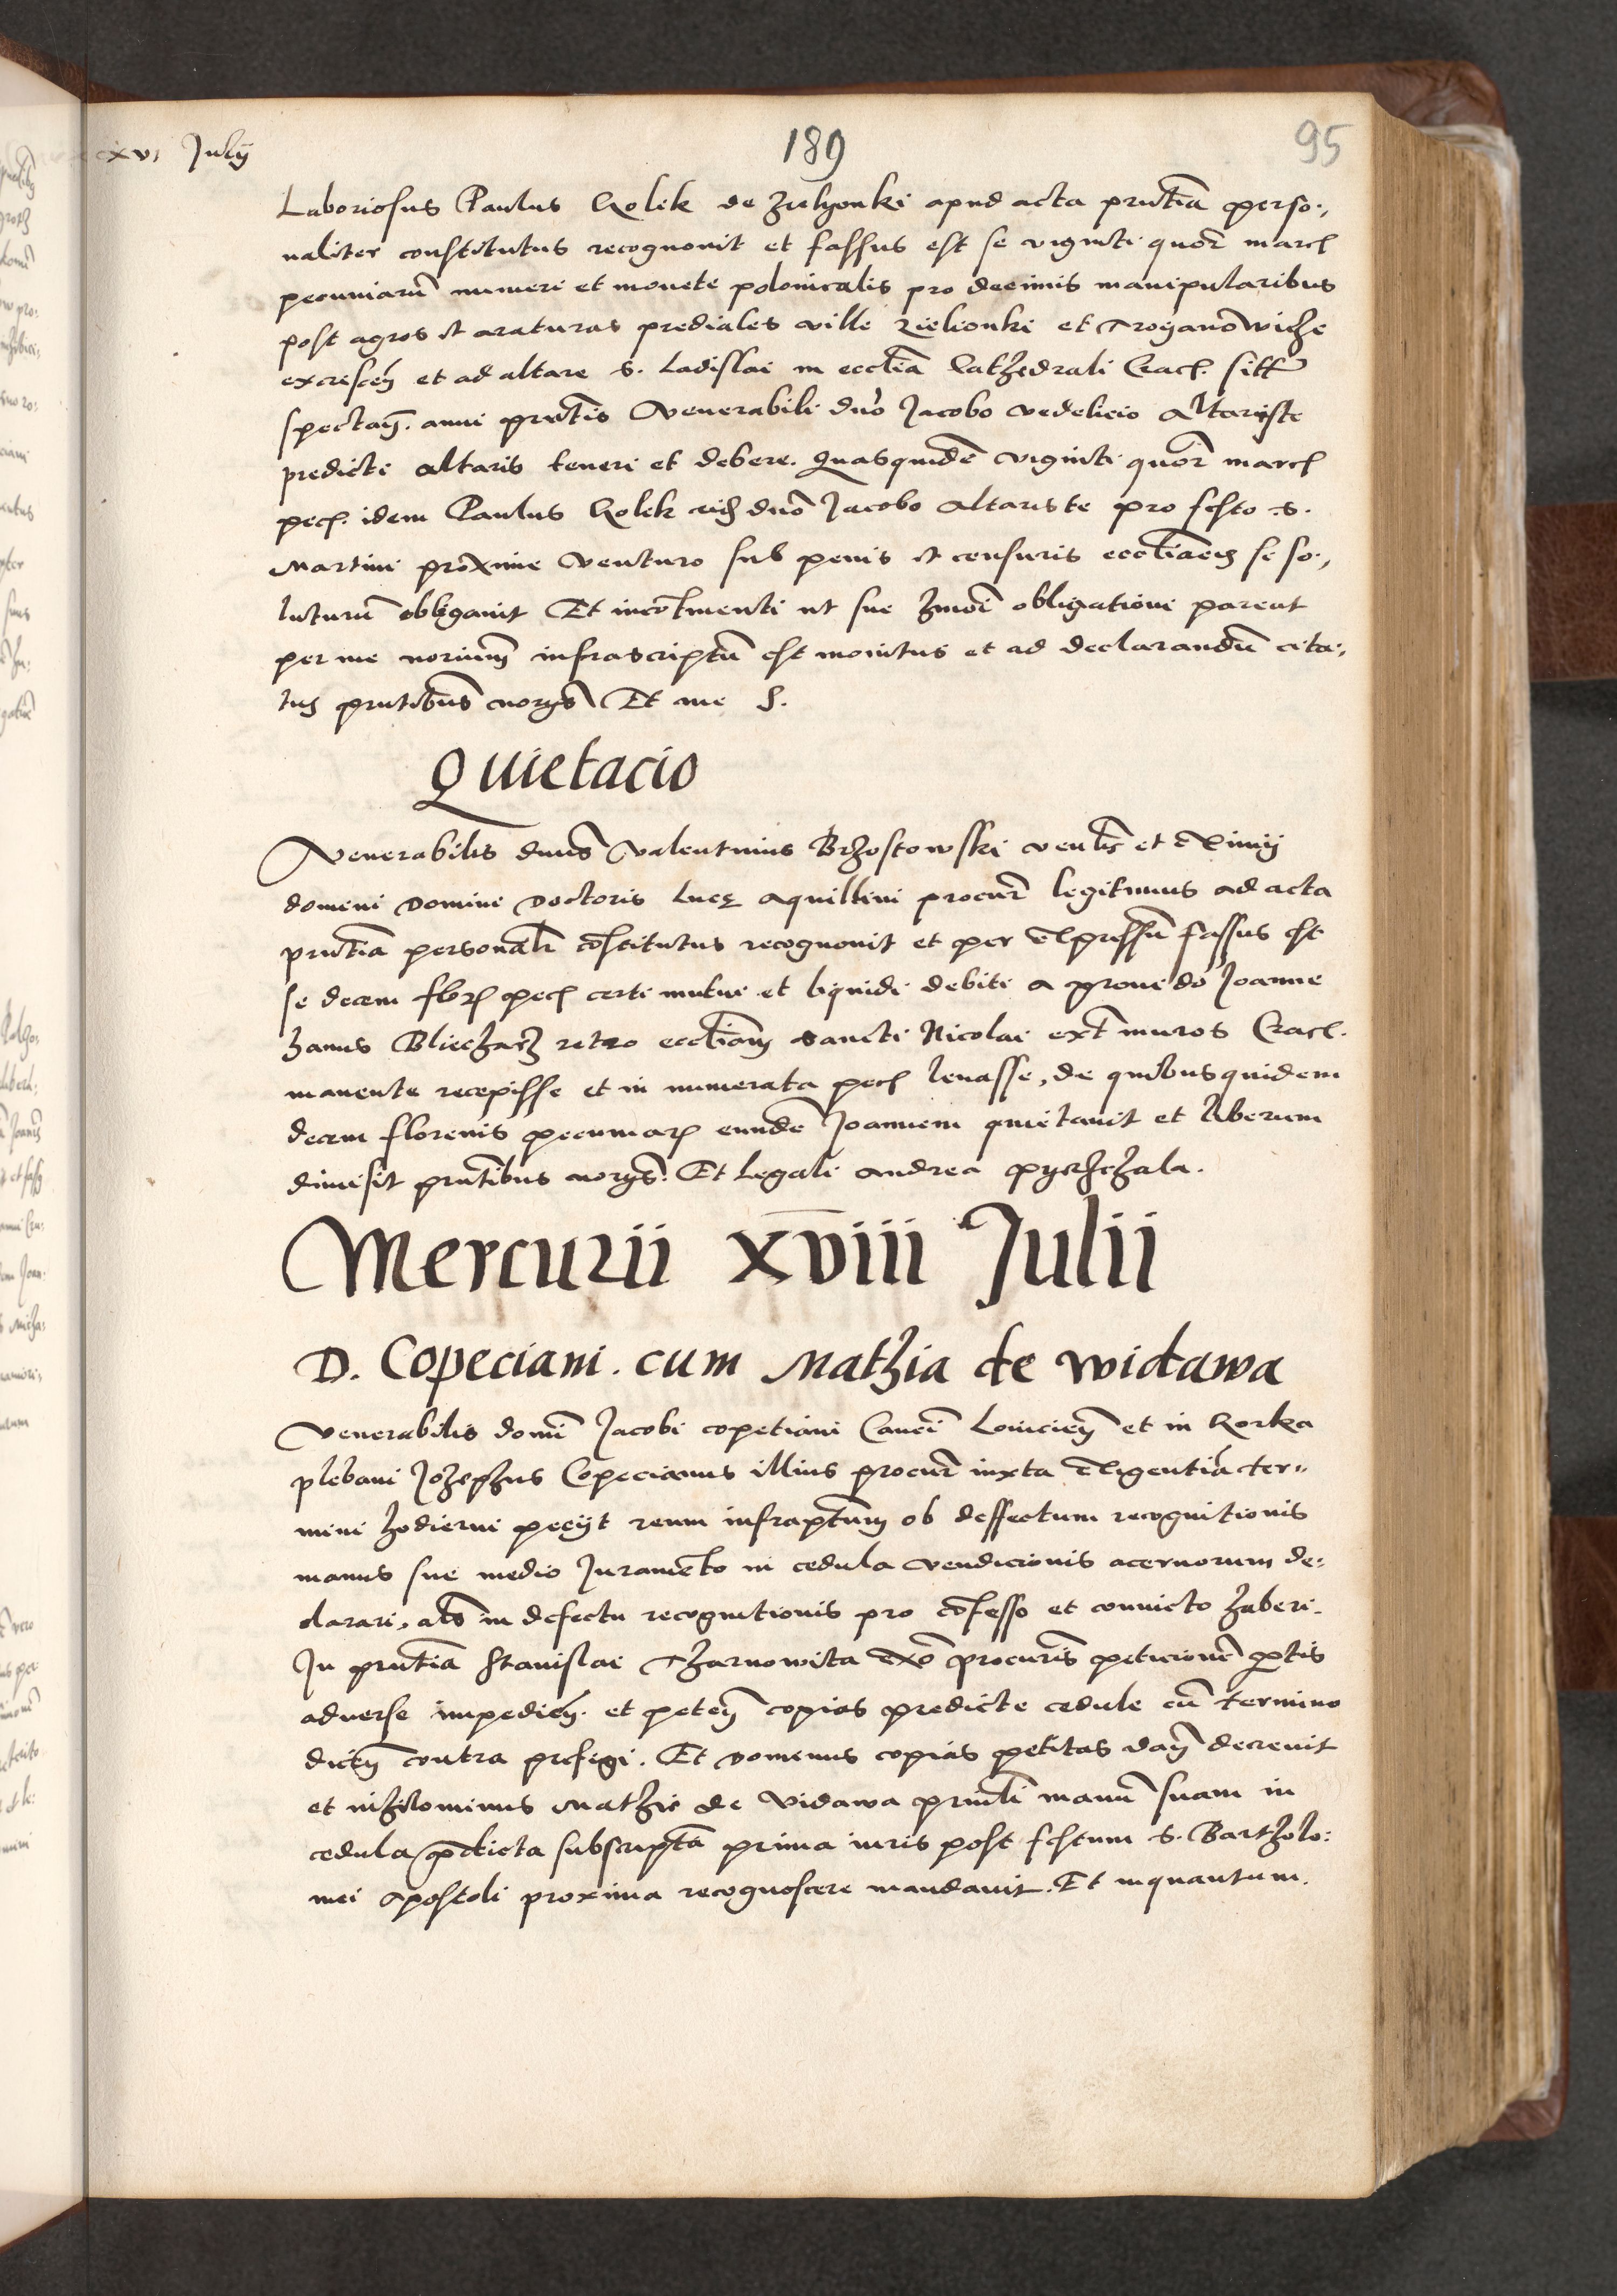 xvi Julii
189
95
Laboriosus Paulus Rolek de Zielyonki apud acta pñtia perso-
naliter constitutus recognovit et fassus est se viginti quor̃ marcẽ
pecuniarũ numeri et monete polonicalis pro decimis manipularibus
post agros et araturas prediales ville Zielionki et Troyanowicze
excrescẽ et ad altare S. Ladislai in ecclia Cathedrali Crac.
spectañ. anni pñtis Venerabili dno Jacobo Vedelicio Altariste
predicti altaris teneri et debere. Quasquidẽ viginti quor̃ marcẽ
pec. idem Paulus Rolek dño Jacobo Altariste pro festo S.
Martini proxime venturo sub penis et censuris eccliacis se so-
luturũ obligavit Et incõtinenti ut sue hmõi obligationi pareat
per me noriũm infrascriptũ est monitus et ad declarandũ cita-
tus pñtibus Et me S.
Quietacio
Venerabilis dñus Valentinus Brzostowski et Eximii
domini Domini Doctoris Lucę Aquillini procur̃ legitimus ad acta
pñtia personalr̃ cõstitutus recognovit et per expressũ fassus est
se decem flor̃ pec̃ certi mutui et liquidi debiti a provido Joanne
Hanus Bliecharz retro eccliam Sancti Nicolai ext̃ muros Crac.
manente recepisse et in numerata pec̃ levasse, de quibusquidem
decem florenis pecuniar̃ eundẽ Joannem quietavit et liberum
dimisit pñtibus Et Legali Andrea
Mercurii xviii Julii
D. Copeciani. cum Mathia de Widawa
Venerabilis domĩ Jacobi copetiani Canci Loviciẽ et in Rorka
plebani Jozephus Copecianus illius procur̃ iuxta exigentiã ter-
mini hodierni peciit reum infraptum ob deffectum recognitionis
manus sue medio Juramẽto in cedula vendicionis acervorum de-
clarari, als in defectu recognitionis pro cõfesso et convicto haberi.
In pñtia Stanislai Tharnowita procuris peticionẽ ptis
adverse impediẽ. et petẽ copias predicte cedule cũ termino
dicẽ contra prefigi. Et Dominus copias petitas dañ decrevit
et nihilominus Mathie de Vidawa manũ suam in
cedula pdicta subscriptã prima iuris post festum S. Bartholo-
mei Apostoli proxima recognoscere mandavit. Et inquantum.